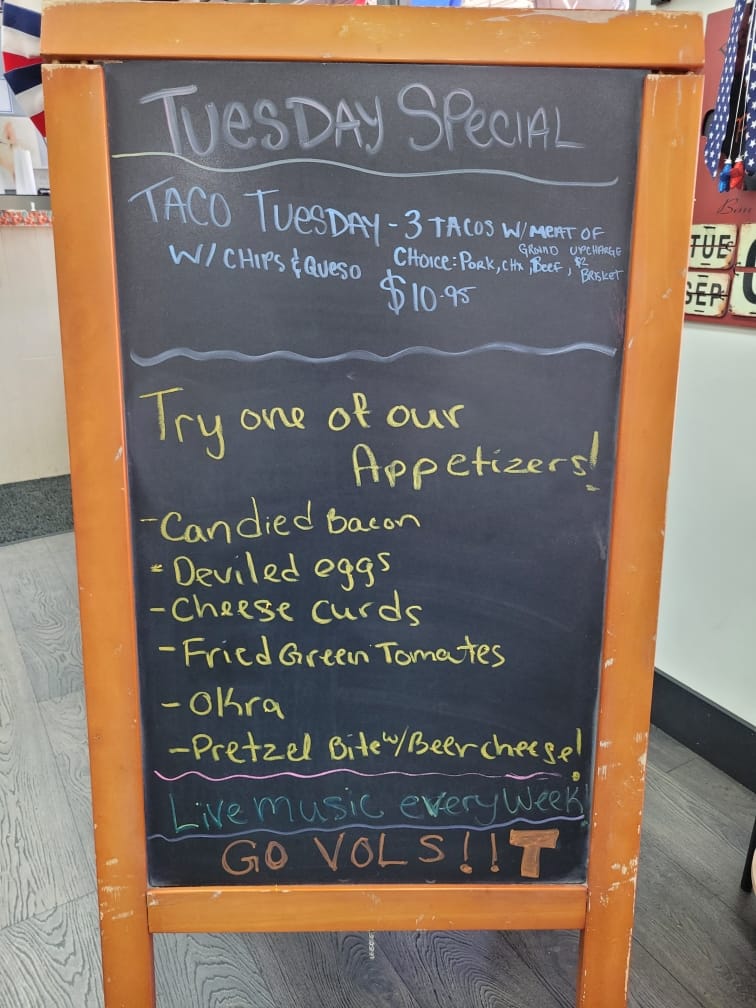 TUESDAY SPECIAL
TACO TUESDAY - 3 TACOS W/ MEAT OF
W/ CHIPS & QUESO CHOICE: PORK, CHX, GROUND BEEF, UPCHARGE $2 BRISKET
$10.95
Try one of our
Appetizers!
- Candied Bacon
- Deviled eggs
- Cheese Curds
- Fried Green Tomatoes
- Okra
- Pretzel Bite w/ Beer cheese!
Live music every week!
GO VOLS!! T
TUE
SEP